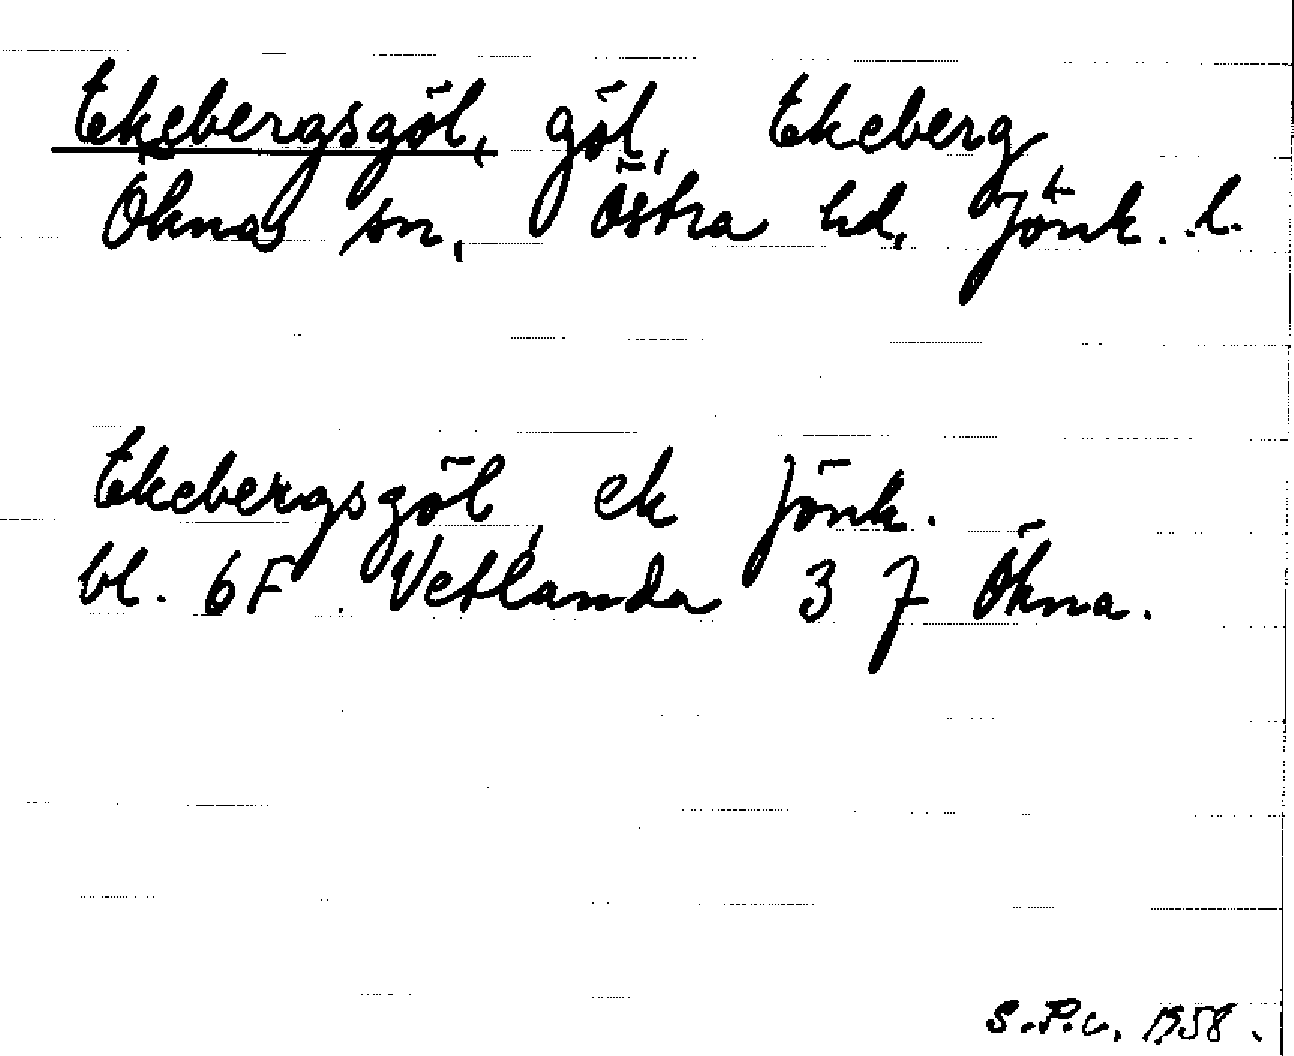 Ekebergsgöl, göl, Ekeberg
Ökna sn, Östra hd, Jönk. l.
Ekebergsgöl, ek Jönk.
bl. 6F Vetlanda 3 J Ökna.
S.P.C. 1958.